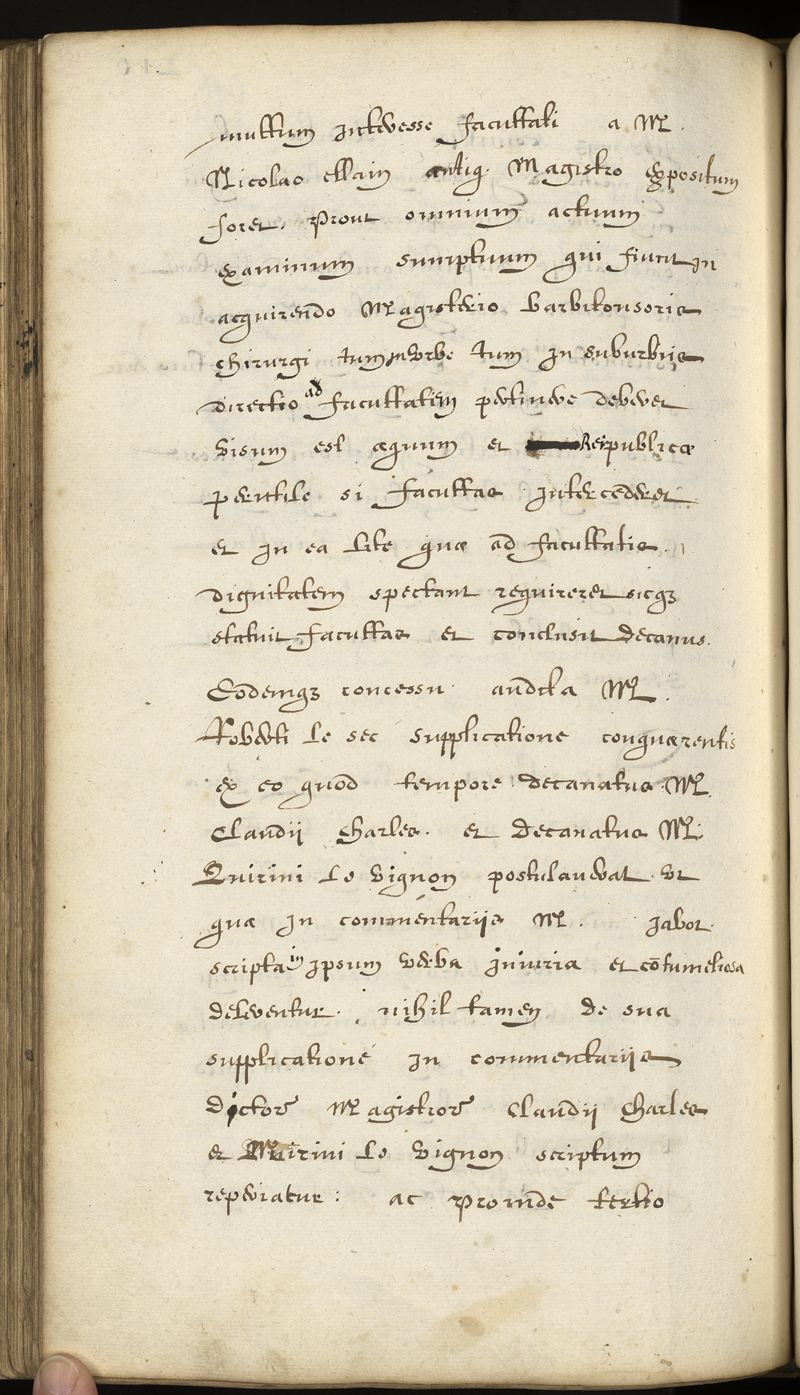 multum interesse facultati a M.
Nicolao Ellain antiq. Magistro expositum
foret. prout omnium actuum
examinum sumptuum qui fiunt in
acquirendo Magisterio barbitonsoris
chirurgi tum in vrbe tum in suburbiis
directio ad facultatem pertinere deberet
visum est æquum et Reipublicæ
perutile si facultas intercederet
et in ea lite quæ ad facultatis
dignitatem spectant requireret sicq3
statuit facultas et conclusit decanus.
Eodemq3 concessu audita M.
Roberti le sec supplicatione conquærentis
ex eo quod tempore decanatus M.
Claudii Charles. et decanatus M.
Quirini le vignon postulauerat vt
quæ in commentariis M. Jabot
scripta in ipsum verba iniuria et cōtumeliosa
delerentur. nihil tamen de sua
supplicatione in commentariis
dictorͬ Magistrorͬ Claudii Charles
et Quirini le vignon scriptum
reperiatur: ac proinde tertio